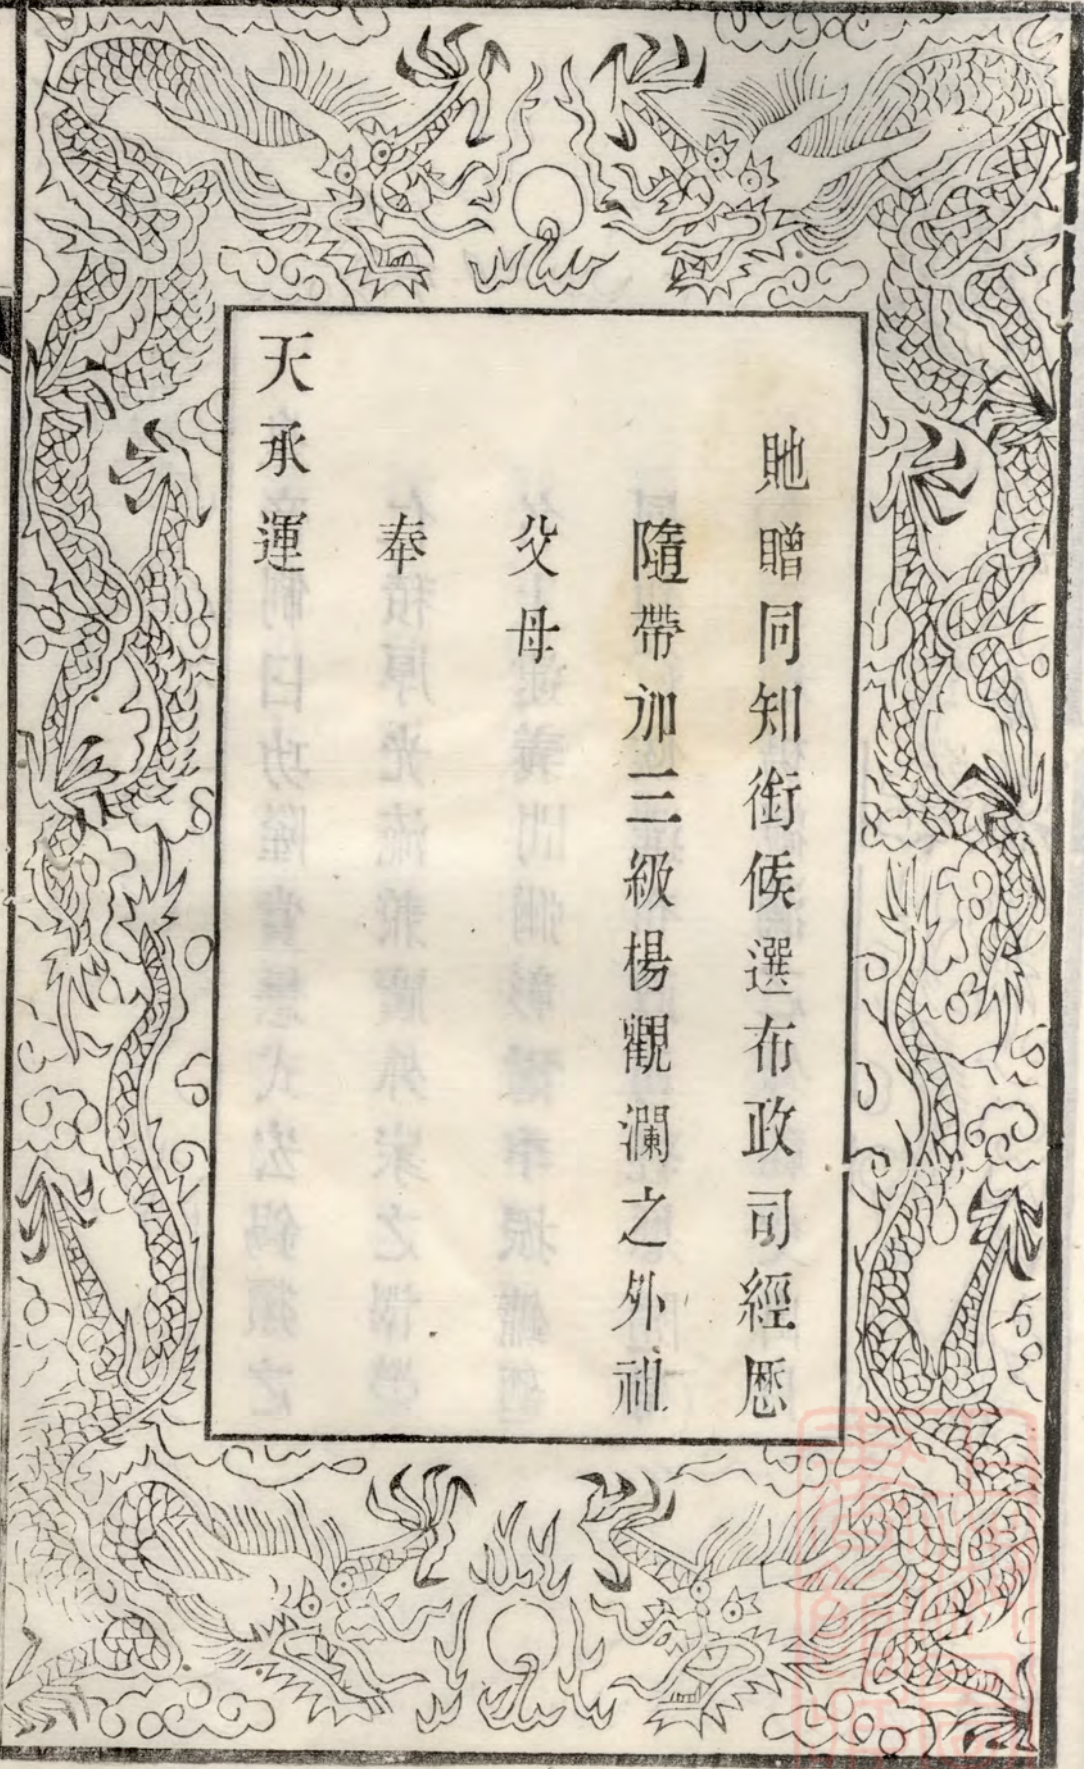 貤贈同知銜候選布政司經歷
隨帶加三級楊觀瀾之外祖
父母
奉
天承運